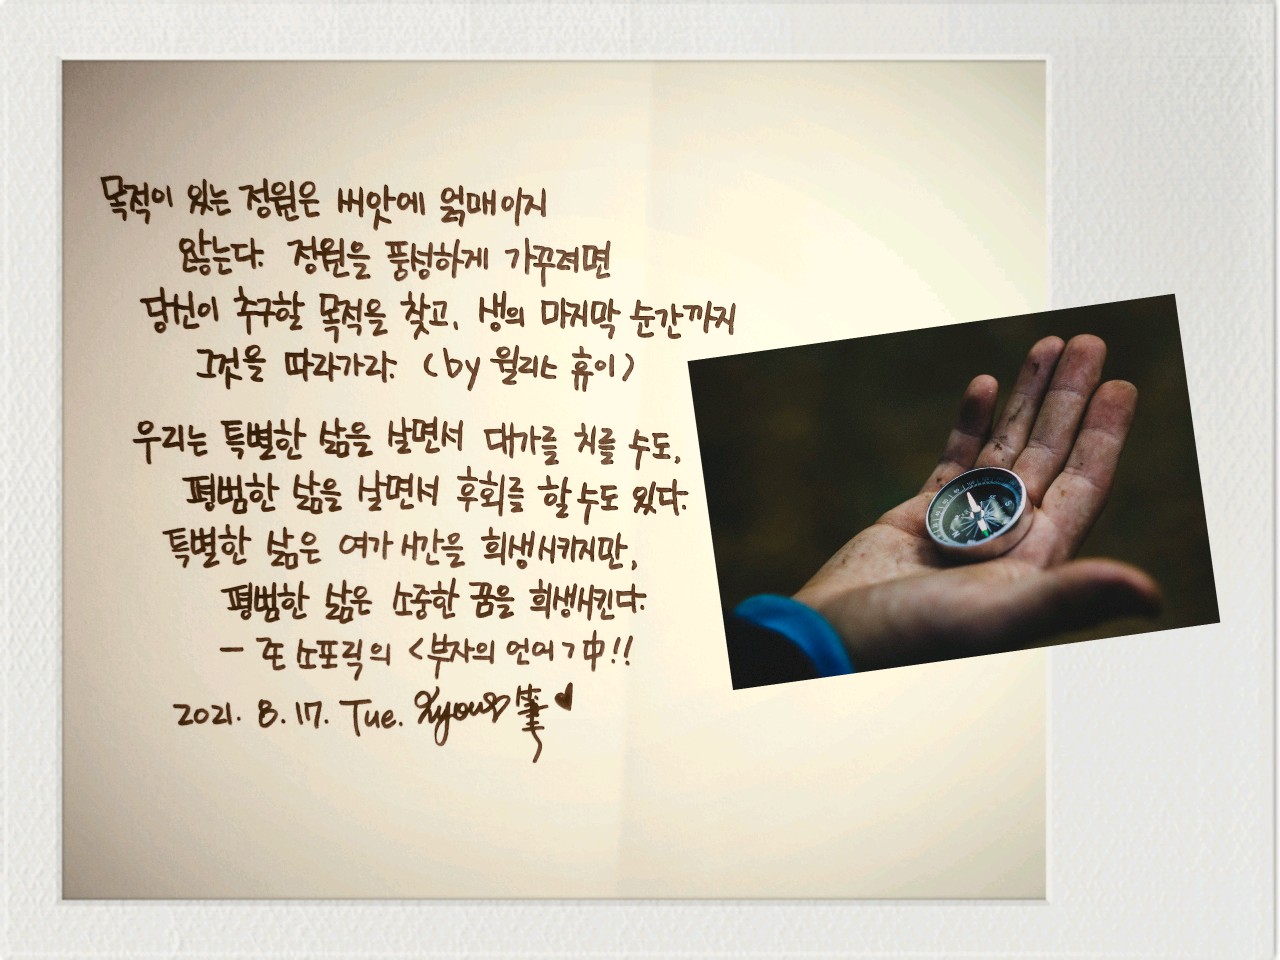 목적이 있는 정원은 씨앗에 얽매이지
않는다. 정원을 풍성하게 가꾸려면
당신이 추구할 목적을 찾고, 생의 마지막 순간까지
그것을 따라가라. (by 윌리스 휴이)
우리는 특별한 삶을 살면서 대가를 치를 수도,
평범한 삶을 살면서 후회를 할 수도 있다.
특별한 삶은 여가 시간을 희생시키지만,
평범한 삶은 소중한 꿈을 희생시킨다.
- 존 소포릭의 <부자의 언어> 中!!
2021. 8. 17. Tue. 筆